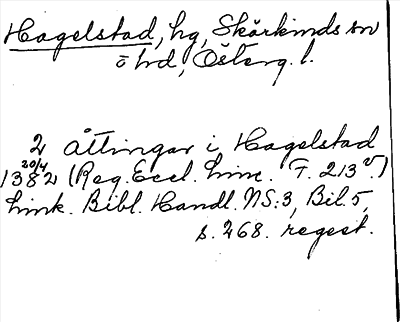 Hagelstad, hg, Skärkinds sn
ö hd, Österg. l.
2 åttingar i Hagelstad
20/4
1382 (Reg. Eccl. Linc. F. 213 v.)
Link. Bibl. Handl. NS:3, Bil. 5,
s. 268. regest.